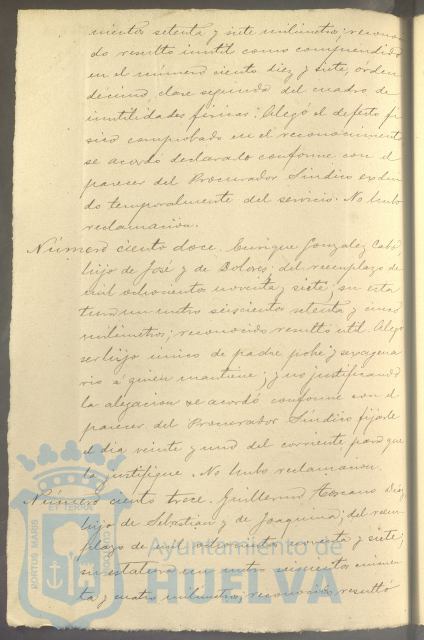 cientos setenta y siete milimetros; reconoci
do resultó inutil como comprendido
en el número ciento diez y siete, órden
décimo, clase segunda del cuadro de
inutilidades fisicas: Alegó el defecto fi
sico comprobado en el reconocimiento
se acordó declararlo conforme con el
parecer del Procurador Sindico exclui
do temporalmente del servicio. No hubo
reclamacion.
Número ciento doce. Enrique Gonzalez
hijo de José y de Dolores; del reemplazo de
mil ochocientos noventa y siete; su esta
tura un metro seiscientos setenta y cinco
milimetros; reconocido resultó util. Alegó
ser hijo único de padre pobre y sexagena
rio á quien mantiene; y no justificando
la alegacion se acordó conforme con el
parecer del Procurador Sindico fijarle
el dia veinte y uno del corriente para que
la justifique. No hubo reclamacion.
Número ciento trece. Guillermo Toscano Diaz
hijo de Sebastian y de Joaquina; del reem
plazo de mil ochocientos noventa y siete;
su estatura un metro seiscientos cincuen
ta y cuatro milimetros; reconocido resultó
PORTUS MARIS ET TERRAE
Ayuntamiento de
HUELVA